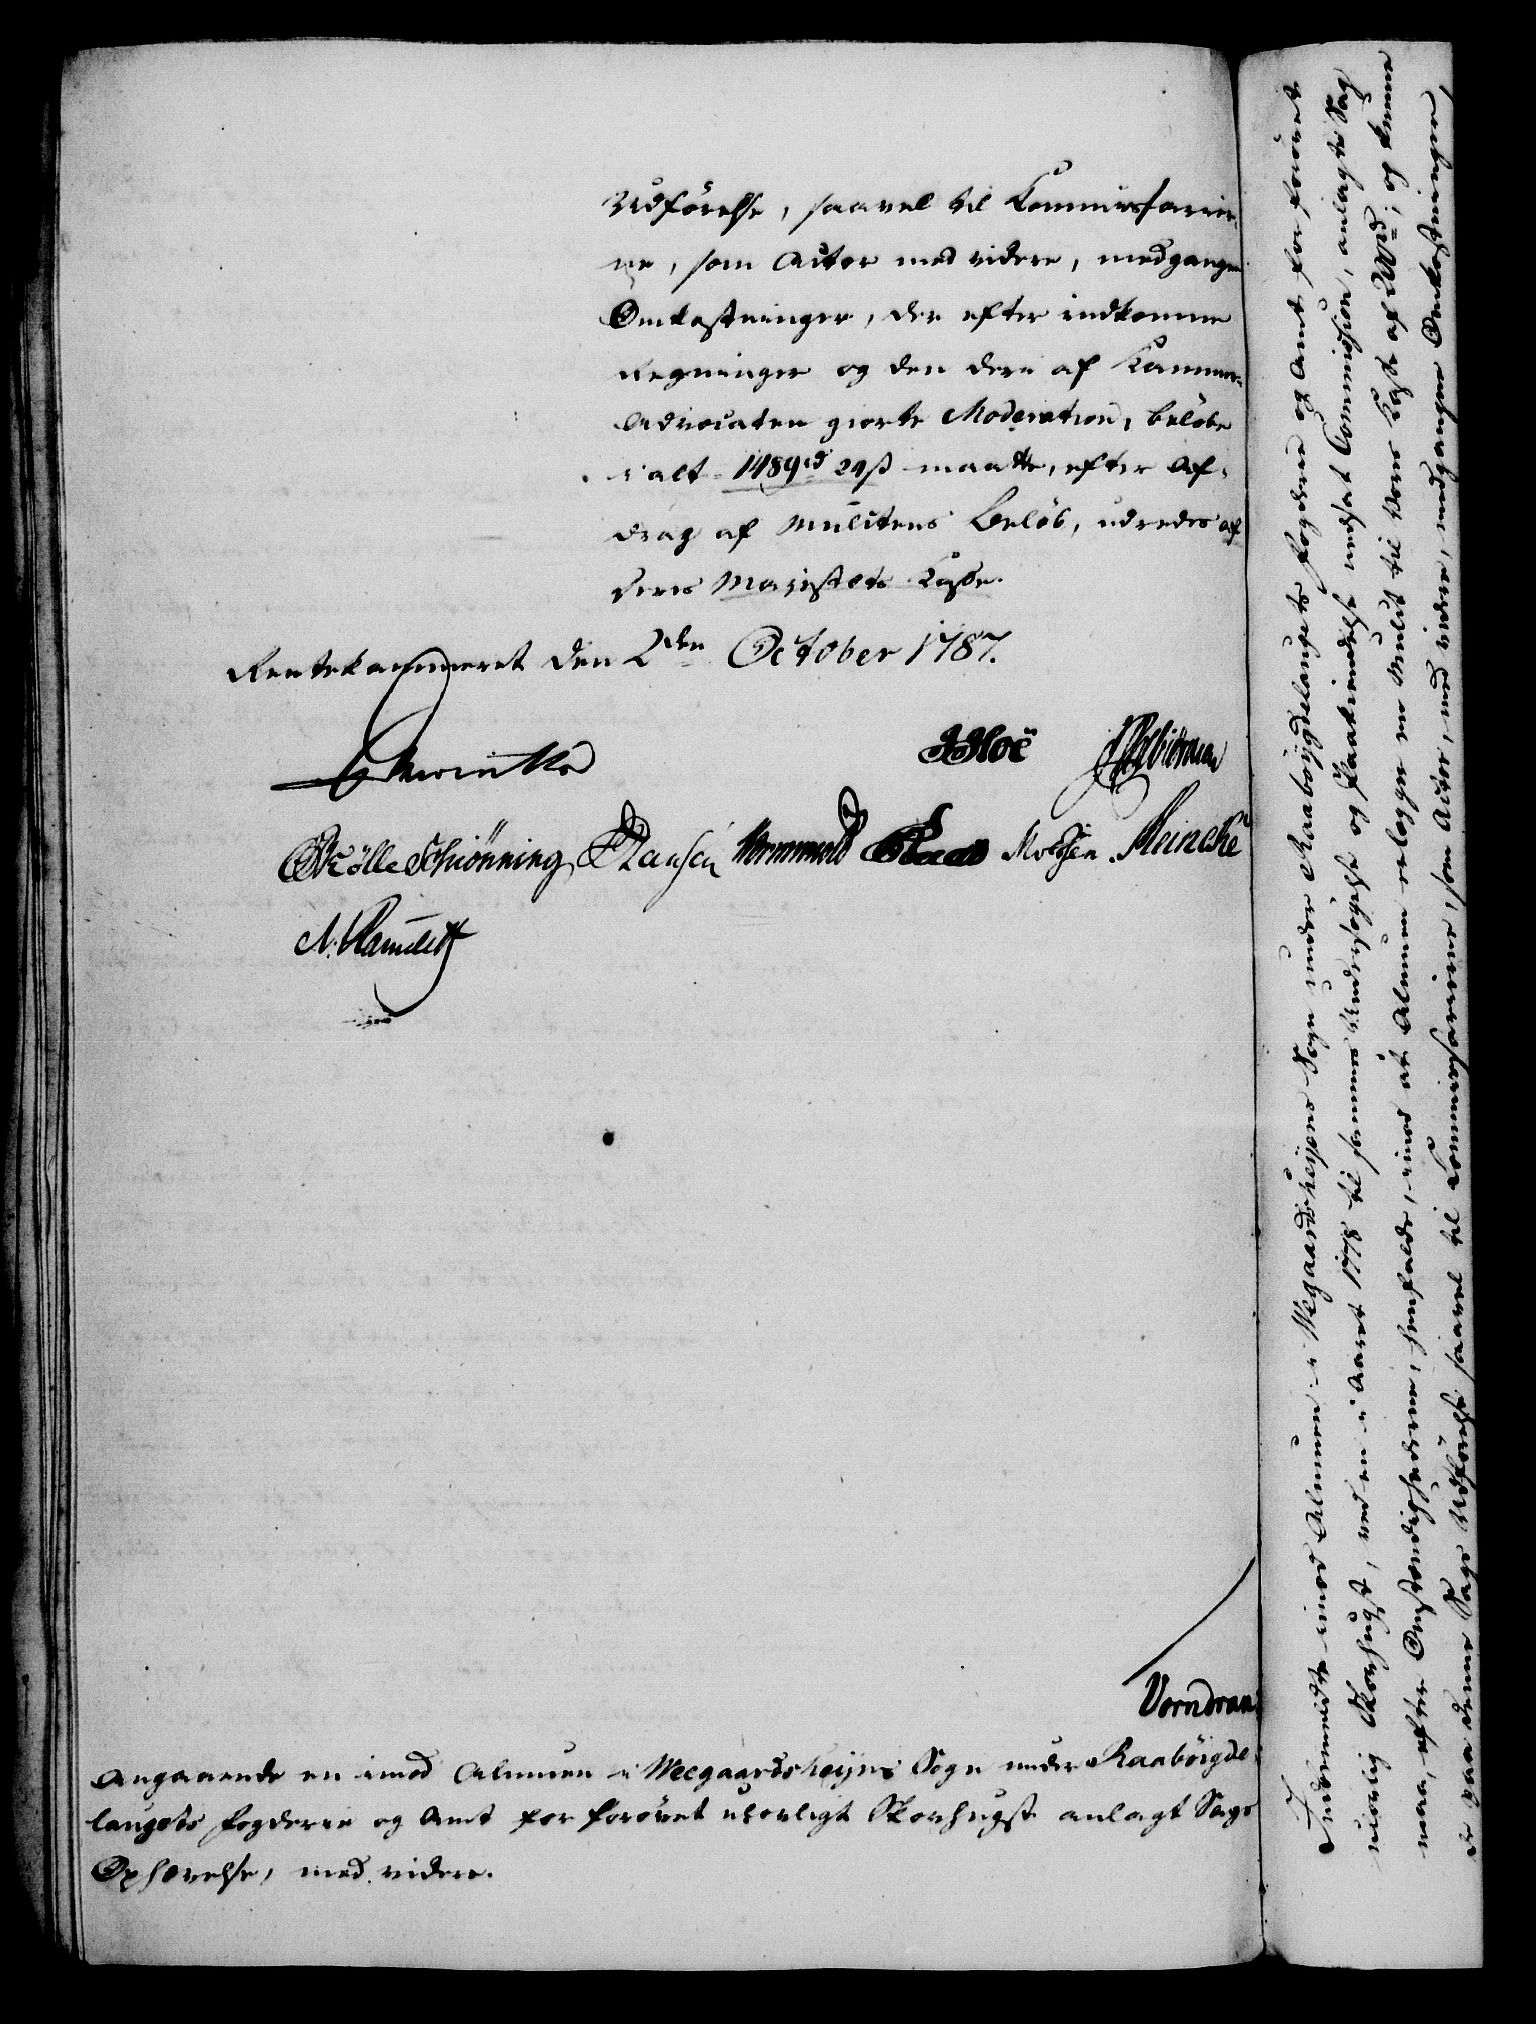 Udförelse, saavel til Commissarier-
ne, som Actor med videre, medgangne
Omkostninger, der efter indkomne
Regninger og den derii af Kammer-
Advocaten giorte Moderation, beløbe
i alt 1489rd 29ß maatte, efter Af-
drag af Mulctens Beløb, udredes af
Deres Majestæts Casse.
Rentekammeret den 2den October 1787.
JHoë
Schiönning Hansen Wormskiold Moessen Meincke
N. Ramclett
Vorndran
Angaaende en imod Almuen i Weegaardsheyens Sogn under Raaböigde-
laugets Fogderie og Amt for forövet ulovligt Skovhugst anlagt Sags
Ophævelse, med videre.
Indbemeldte imod Almuen i Wegaardsheyens Sogn under Raaböygdelaugets Fogderie og Amt for forövet
ulovlig Skovhugst, ved en i Aaret 1778 til sammes Undersögelse og Paakiendelse nedsat Commission, anlagte Sag
maa, efter Omstændighederne, henfalde, imod at Almuen erlegger en Mulct til Vores Casse af 200rd; og kunne
de paa denne Sags Udförelse saavel til Commissarierne, som Actor, med videre, medgangne Omkostninger,